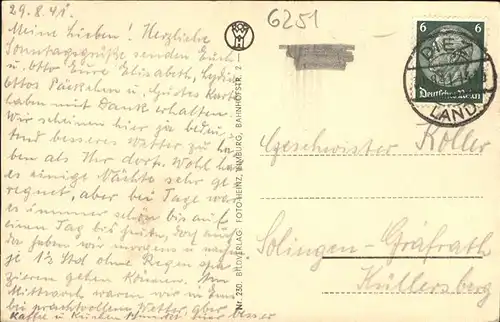 29.8.41.
Meine Lieben! Herzliche
Sonntagsgrüße senden Euch
u. Otto Eure Elisabeth, Lydia
Ottos Päckchen u. Gretes Karte
haben mit Dank erhalten.
Wir scheinen hier ja bedeu
tend besseres Wetter zu ha
ben als Ihr dort. Wohl hat
es einige Nächte sehr ge
regnet, aber bei Tage war
es immer schön bis auf
einen Tag bis heute, doch auch
da haben wir morgens u. nachm.
je 1½ Std ohne Regen spa
zieren gehen können. Am
Mittwoch waren wir in Ems
bei prachtvollem Wetter aber
Kaffee u. Kuchen besser
6251
Nr. 230. BILDVERLAG FOTO-HEINZ, LIMBURG, BAHNHOFSTR.
6 6
Deutsches Reich
DIEZ
LAND
Geschwister Koller
Solingen-Gräfrath
Küllersberg